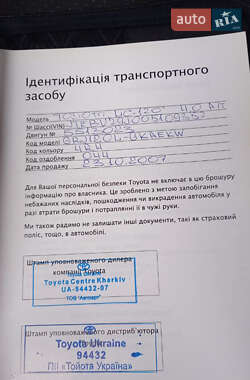 AUTO RIA
Ідентифікація транспортного
засобу
Модель TOYOTA LC120 4.0 АП
№ Шассі(VIN)
Двигун №
Код моделі
Код кольору 4R4
Код оздоблення
Дата продажу 23.10.2007
Для Вашої персональної безпеки Toyota не включає в цю брошуру
інформацію про власника. Це зроблено з метою запобігання
небажаних наслідків, пошкодження чи викрадення автомобіля у
разі втрати брошури і потраплянні її в чужі руки.
Ми також радимо не залишати інші документи, такі, як страховий
поліс, тощо, в автомобілі.
Штамп уповноваженого дилера
компанії Toyota
Toyota Ukraine
Toyota Centre Kharkiv
UA-94432-07
ТОВ "Автоарт"
Штамп уповноваженого дистриб'ютора
Toyota Ukraine
94432
ПІІ «Тойота Україна»